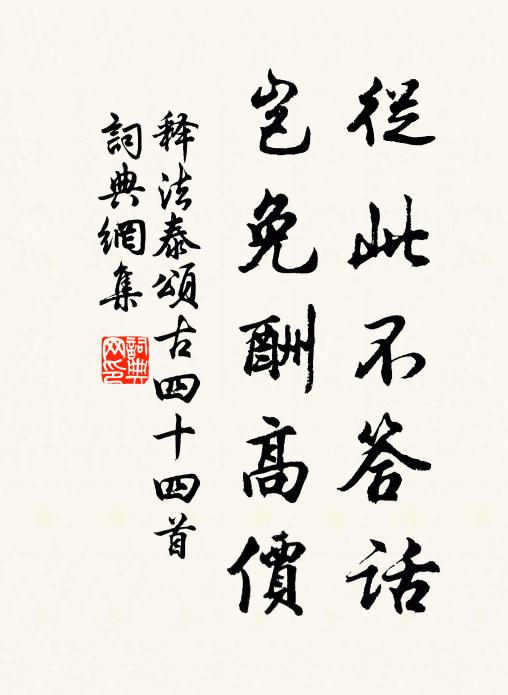 從此不答話
豈免酬高價
释法泰頌古四十四首
詞典網集
詞典網印